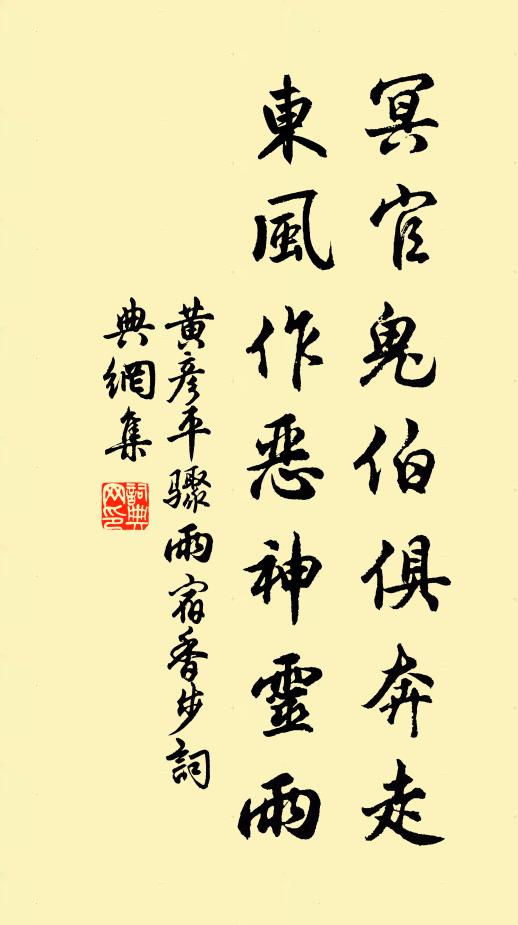 冥官鬼伯俱奔走
東風作惡神靈雨
黃彥平驟雨宿香步詞
典網集
詞典
网印